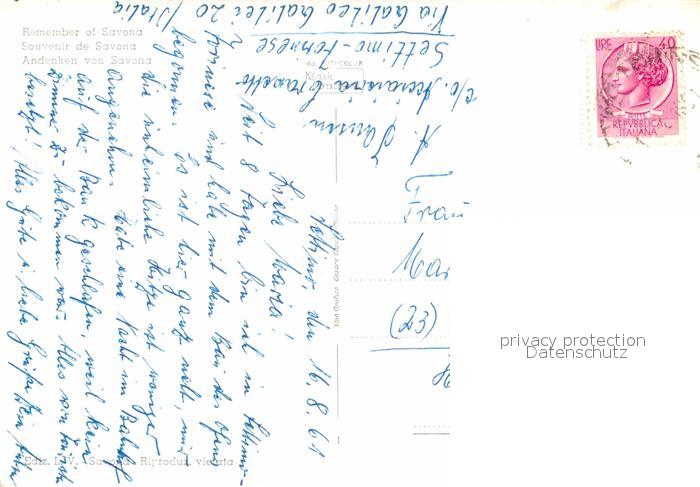 Remember of Savona
Souvenir de Savona
Andenken von Savona
Settimo, den 16.8.61
Liebe Maria!
Seit 8 Tagen bin ich in Settimo-
Torinese und habe mit dem Bau des Ofens
begonnen. Es ist hier ganz nett, nur
die unheimliche Hitze ist weniger
angenehm. Habe eine Nacht im Bahnhof
auf der Bank geschlafen, weil kein
Zimmer zu bekommen war. Alles von
besetzt! Alles Gute u. liebe Grüße Dein
A. Jansen
c/o.
Settimo-Torinese
Via Galileo Galilei 20 / Italia
Frau
Mar
(23)
Ediz. I.V. - Savona - Riproduz. vietata
Kodak
LIRE 40
POSTE
REPVBBLICA
ITALIANA
privacy protection
Datenschutz